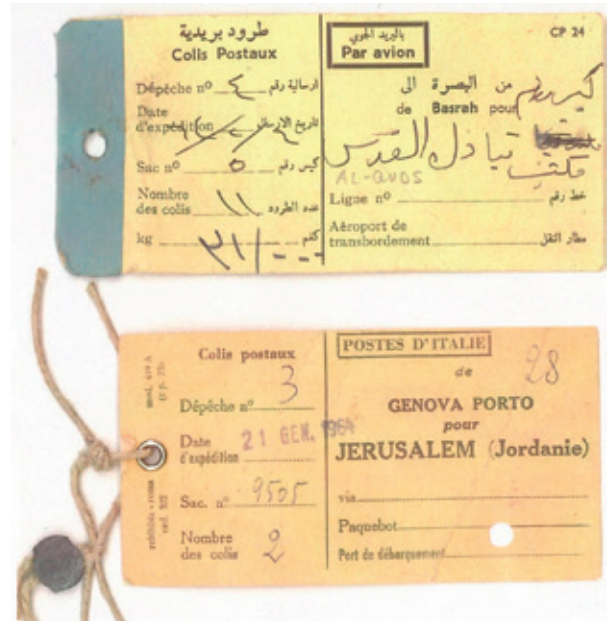 طرود بريدية
Colis Postaux
Dépêche nº ٤ ارسالية رقم
Date
d'expédition تاريخ الارسال
Sac nº ٥ كيس رقم
Nombre
des colis ١١ عدد الطرود
kg ٣١/٠٠٠ كغم
بالبريد الجوي
Par avion
CP 24
من البصرة الى
de Basrah pour
مكتب تبادل القدس
AL-QUDS
Ligne nº خط رقم
Aéroport de
transbordement مطار النقل
Colis postaux
Dépêche nº 3
Date
d'expédition 21 GEN. 1964
Sac. nº 9505
Nombre
des colis 2
POSTES D'ITALIE
de 28
GENOVA PORTO
pour
JERUSALEM (Jordanie)
via
Paquebot
Port de débarquement